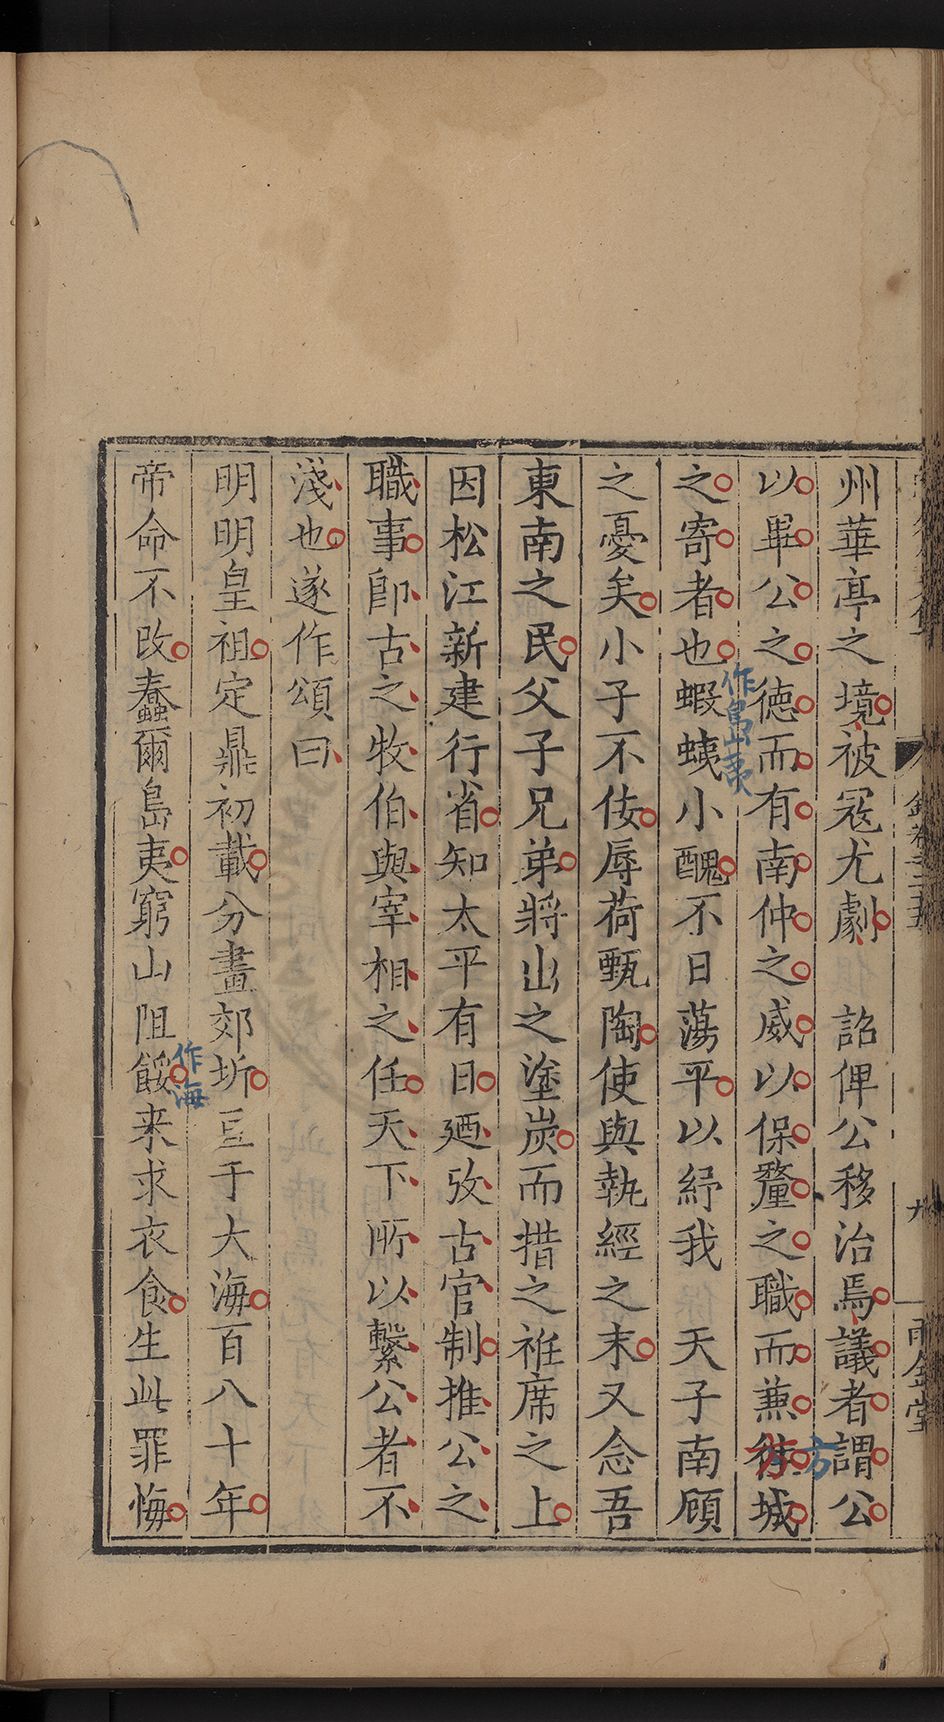 九
雨金堂
州華亭之境被冦尤劇　詔俾公移治焉議者謂公
以畢公之徳而有南仲之威以保釐之職而兼徃城
方
方
之寄者也蝦蛦小醜不日蕩平以紓我　天子南顧
作島夷
之憂矣小子不佞辱荷甄陶使與執經之末又念吾
東南之民父子兄弟將出之塗炭而措之袵席之上
因松江新建行省知太平有日廼攷古官制推公之
職事卽古之牧伯與宰相之任天下所以繫公者不
淺也遂作頌曰
明明皇祖定鼎初載分畫郊圻亘于大海百八十年
帝命不改蠢爾島夷窮山阻餒来求衣食生此罪悔
作海